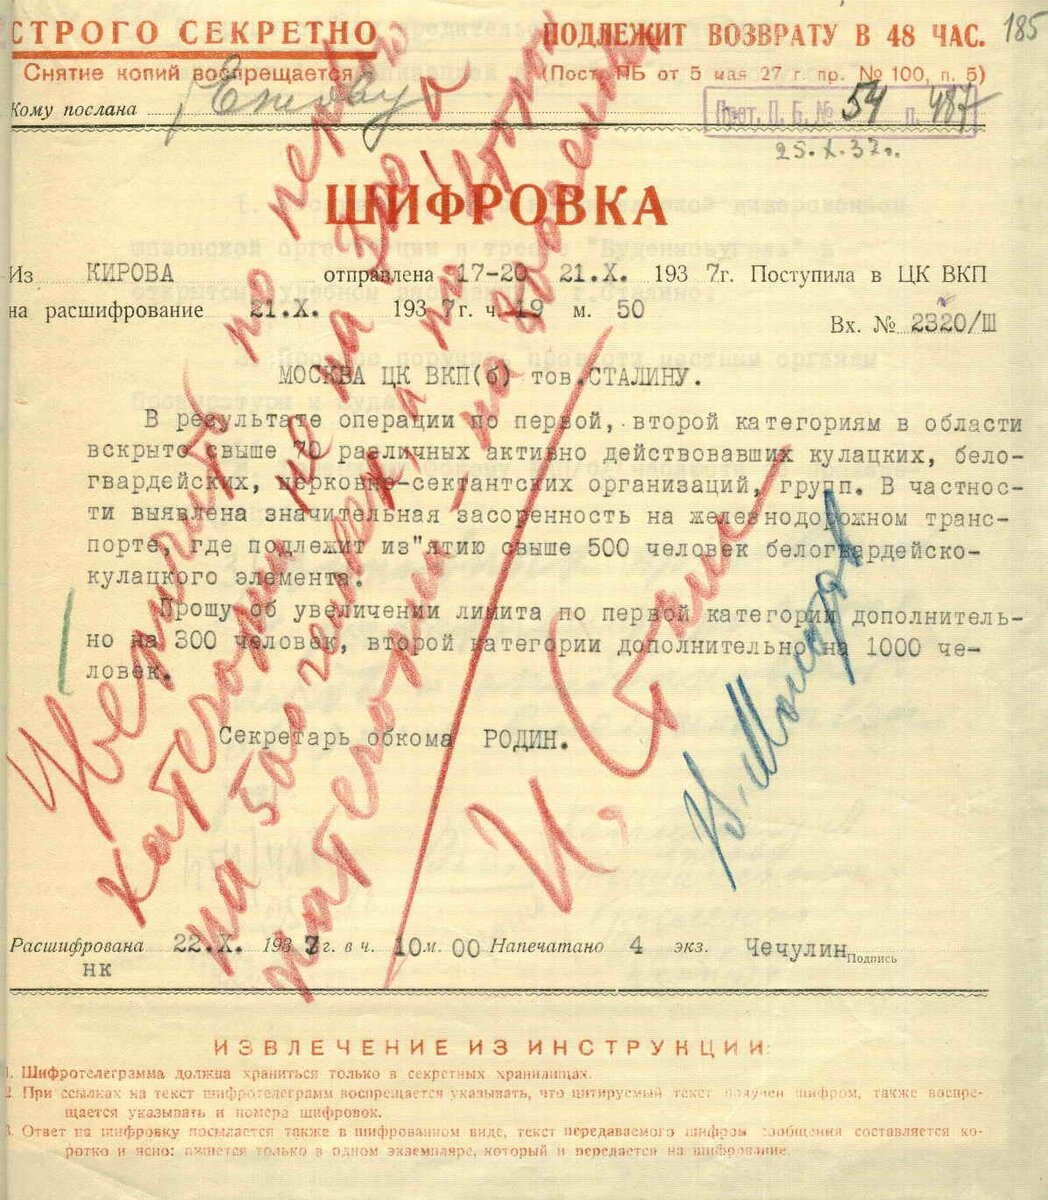 185
СТРОГО СЕКРЕТНО
ПОДЛЕЖИТ ВОЗВРАТУ В 48 ЧАС.
Снятие копий воспрещается
(Пост. ПБ от 5 мая 27 г. пр. № 100, п. 5)
Кому послана Ежову
Прот. П. Б. № 54 п. 487
25.X.37г.
ШИФРОВКА
Из КИРОВА отправлена 17-20 21.X. 1937г. Поступила в ЦК ВКП
на расшифрование 21.X. 1937г. ч. 19 м. 50
Вх. № 2320/Ш
МОСКВА ЦК ВКП(б) тов.СТАЛИНУ.
В результате операции по первой, второй категориям в области
вскрыто свыше 70 различных активно действовавших кулацких, бело-
гвардейских, церковно-сектантских организаций, групп. В частнос-
ти выявлена значительная засоренность на железнодорожном транс-
порте, где подлежит из"ятию свыше 500 человек белогвардейско-
кулацкого элемента.
Прошу об увеличении лимита по первой категории дополнитель-
но на 300 человек, второй категории дополнительно на 1000 че-
ловек.
Секретарь обкома РОДИН.
Увеличить по первой
категории не на 300 а
на 500 человек, а по второй
категории - на 800 человек
И. Сталин
В. Молотов
Расшифрована 22.X. 1937г. в ч. 10 м. 00 Напечатано 4 экз. Чечулин Подпись
нк
ИЗВЛЕЧЕНИЕ ИЗ ИНСТРУКЦИИ:
1. Шифротелеграмма должна храниться только в секретных хранилищах.
2. При ссылках на текст шифротелеграмм воспрещается указывать, что цитируемый текст получен шифром, также воспре-
щается указывать и номера шифровок.
3. Ответ на шифровку посылается также в шифрованном виде, текст передаваемого шифром сообщения составляется ко-
ротко и ясно: пишется только в одном экземпляре, который и передается на шифрование.